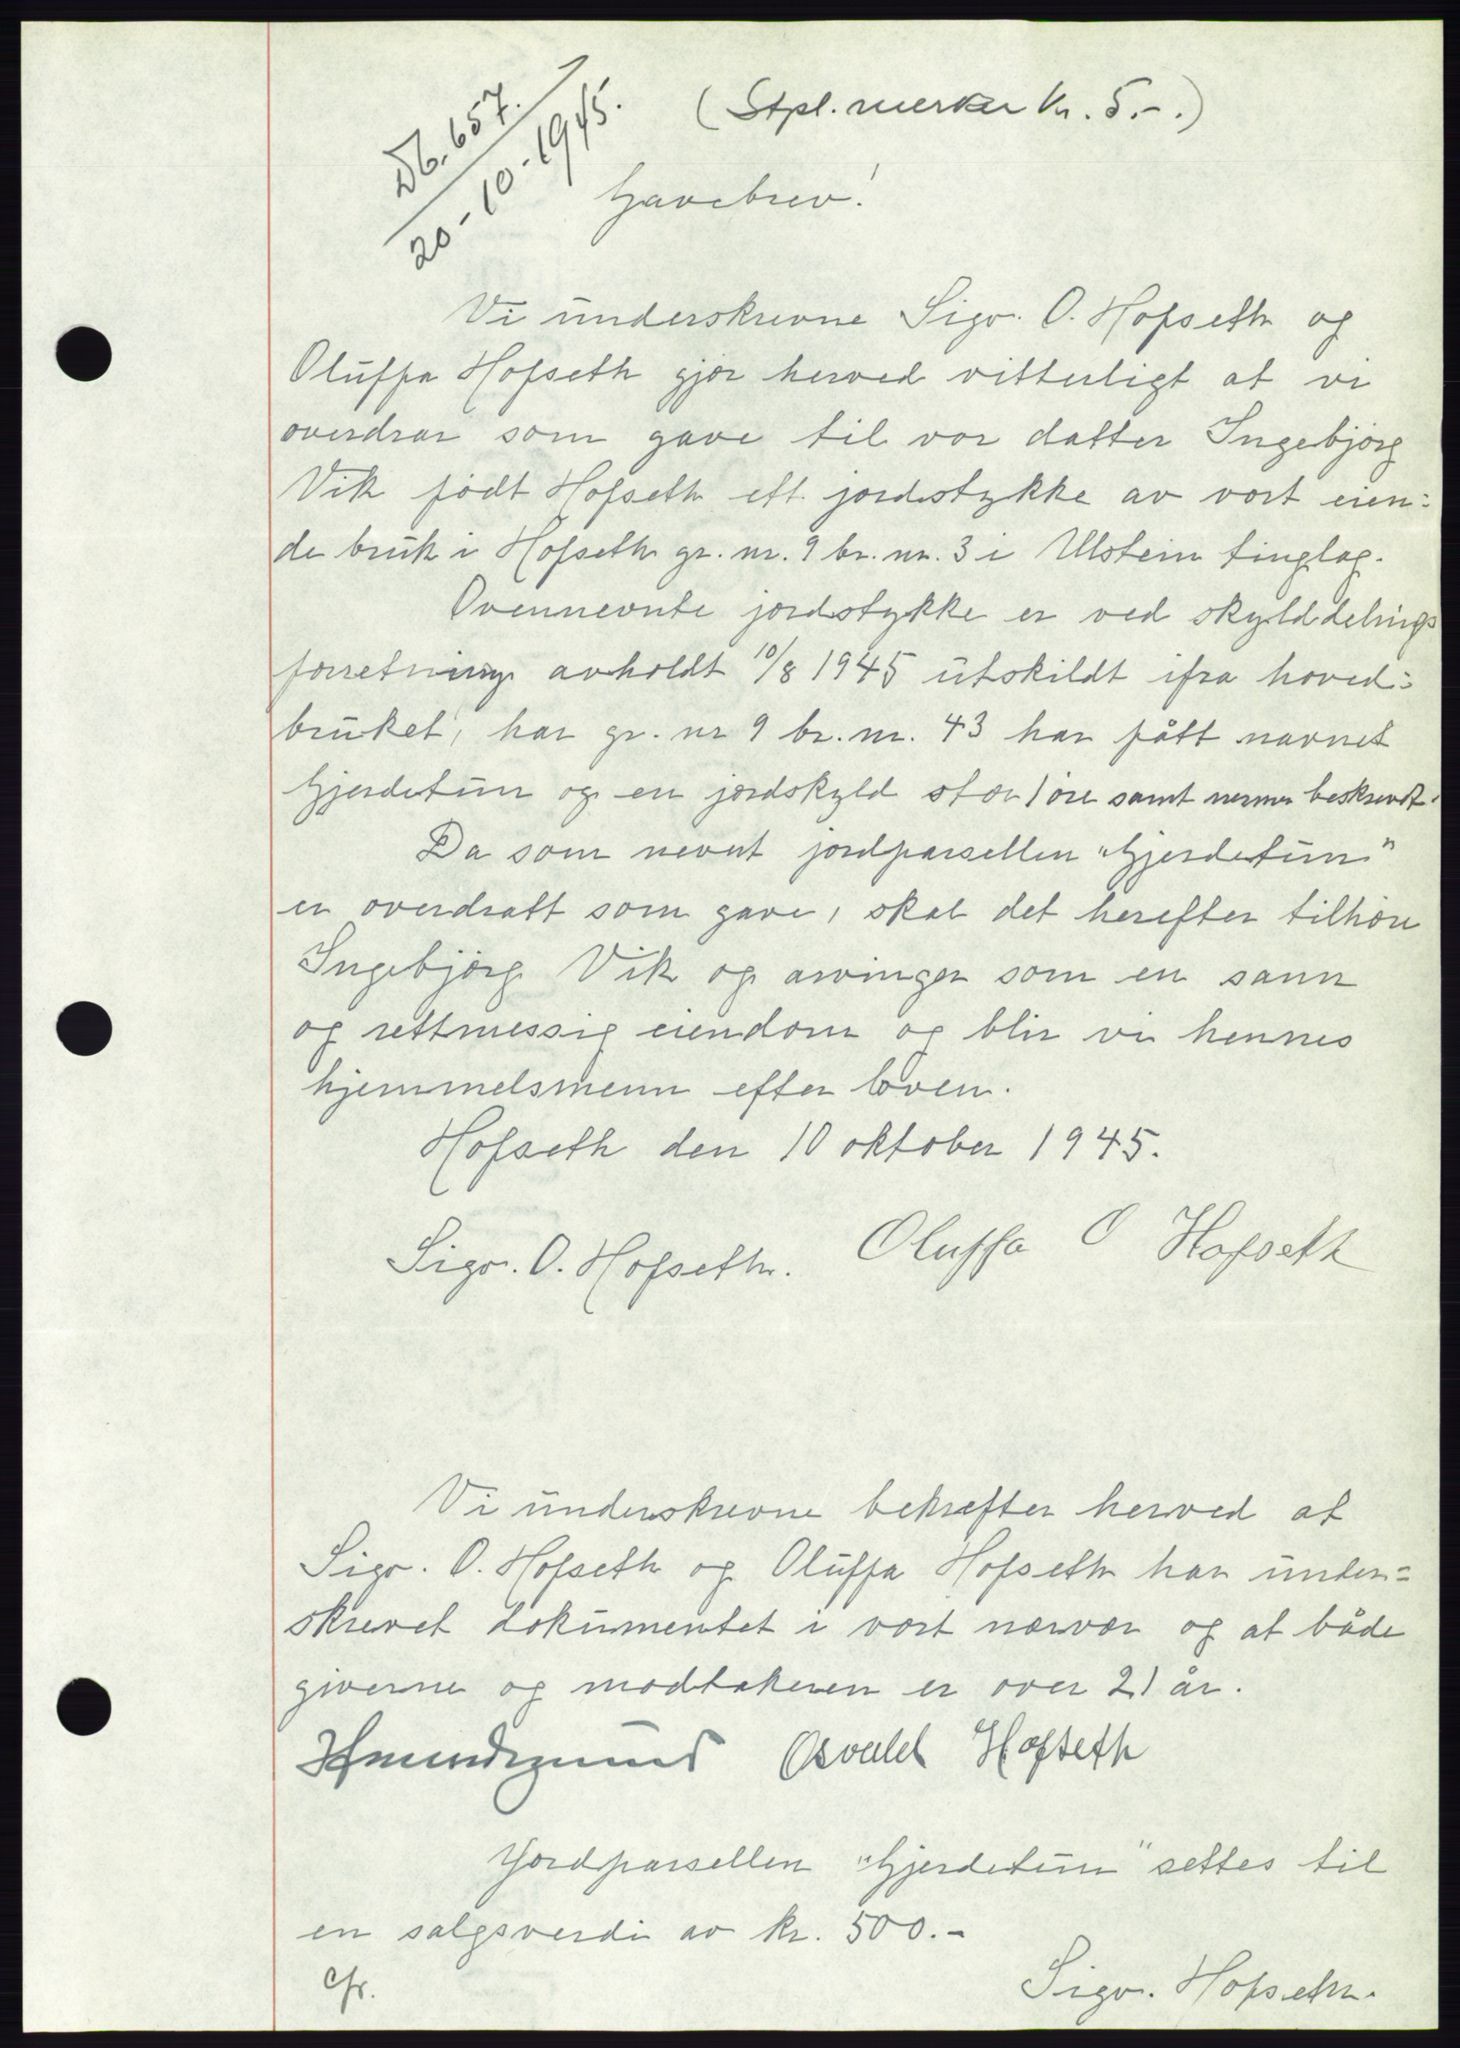 Db. 657.
20-10-1945.
(Stpl. merker kr. 5.-.)
Gavebrev!
Vi underskrevne Sigv. O. Hofseth og
Oluffa Hofseth gjør herved vitterligt at vi
overdrar som gave til vor datter Ingebjørg
Vik født Hofseth ett jordstykke av vort eien=
de bruk i Hofseth gr. nr. 9 br. nr. 3 i Ulstein tinglag.
Ovennevnte jordstykke er ved skylddelings
forretning avholdt 10/8 1945 utskildt ifra hoved=
bruket, har gr. nr 9 br. nr. 43 har fått navnet
Gjerdetun og en jordskyld stor 1 øre samt nermer beskrevet.
Da som nevnt jordparsellen "Gjerdetun"
er overdratt som gave, skal det herefter tilhøre
Ingebjørg Vik og arvinger som en sann
og rettmessig eiendom og blir vi hennes
hjemmelsmenn efter loven.
Hofseth den 10 oktober 1945.
Sigv. O. Hofseth. Oluffa O Hofseth
Vi underskrevne bekrefter herved at
Sigv. O. Hofseth og Oluffa Hofseth har under=
skrevet dokumentet i vort nærvær og at både
giverne og modtakeren er over 21 år.
Osvald Hofseth
Jordparsellen "Gjerdetun" settes til
en salgsverdi av kr. 500.-
Sigv. Hofseth.